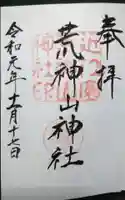 奉拝
荒神山神社
令和元年十一月十七日